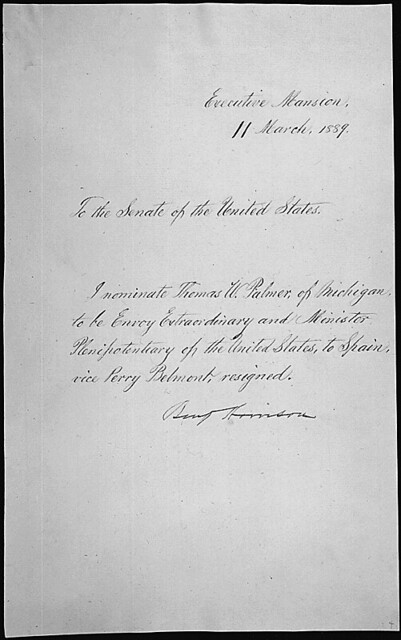 Executive Mansion,
11 March, 1889.
To the Senate of the United States.
I nominate Thomas W. Palmer, of Michigan,
to be Envoy Extraordinary and Minister
Plenipotentiary of the United States, to Spain,
vice Perry Belmont, resigned.
Benj Harrison